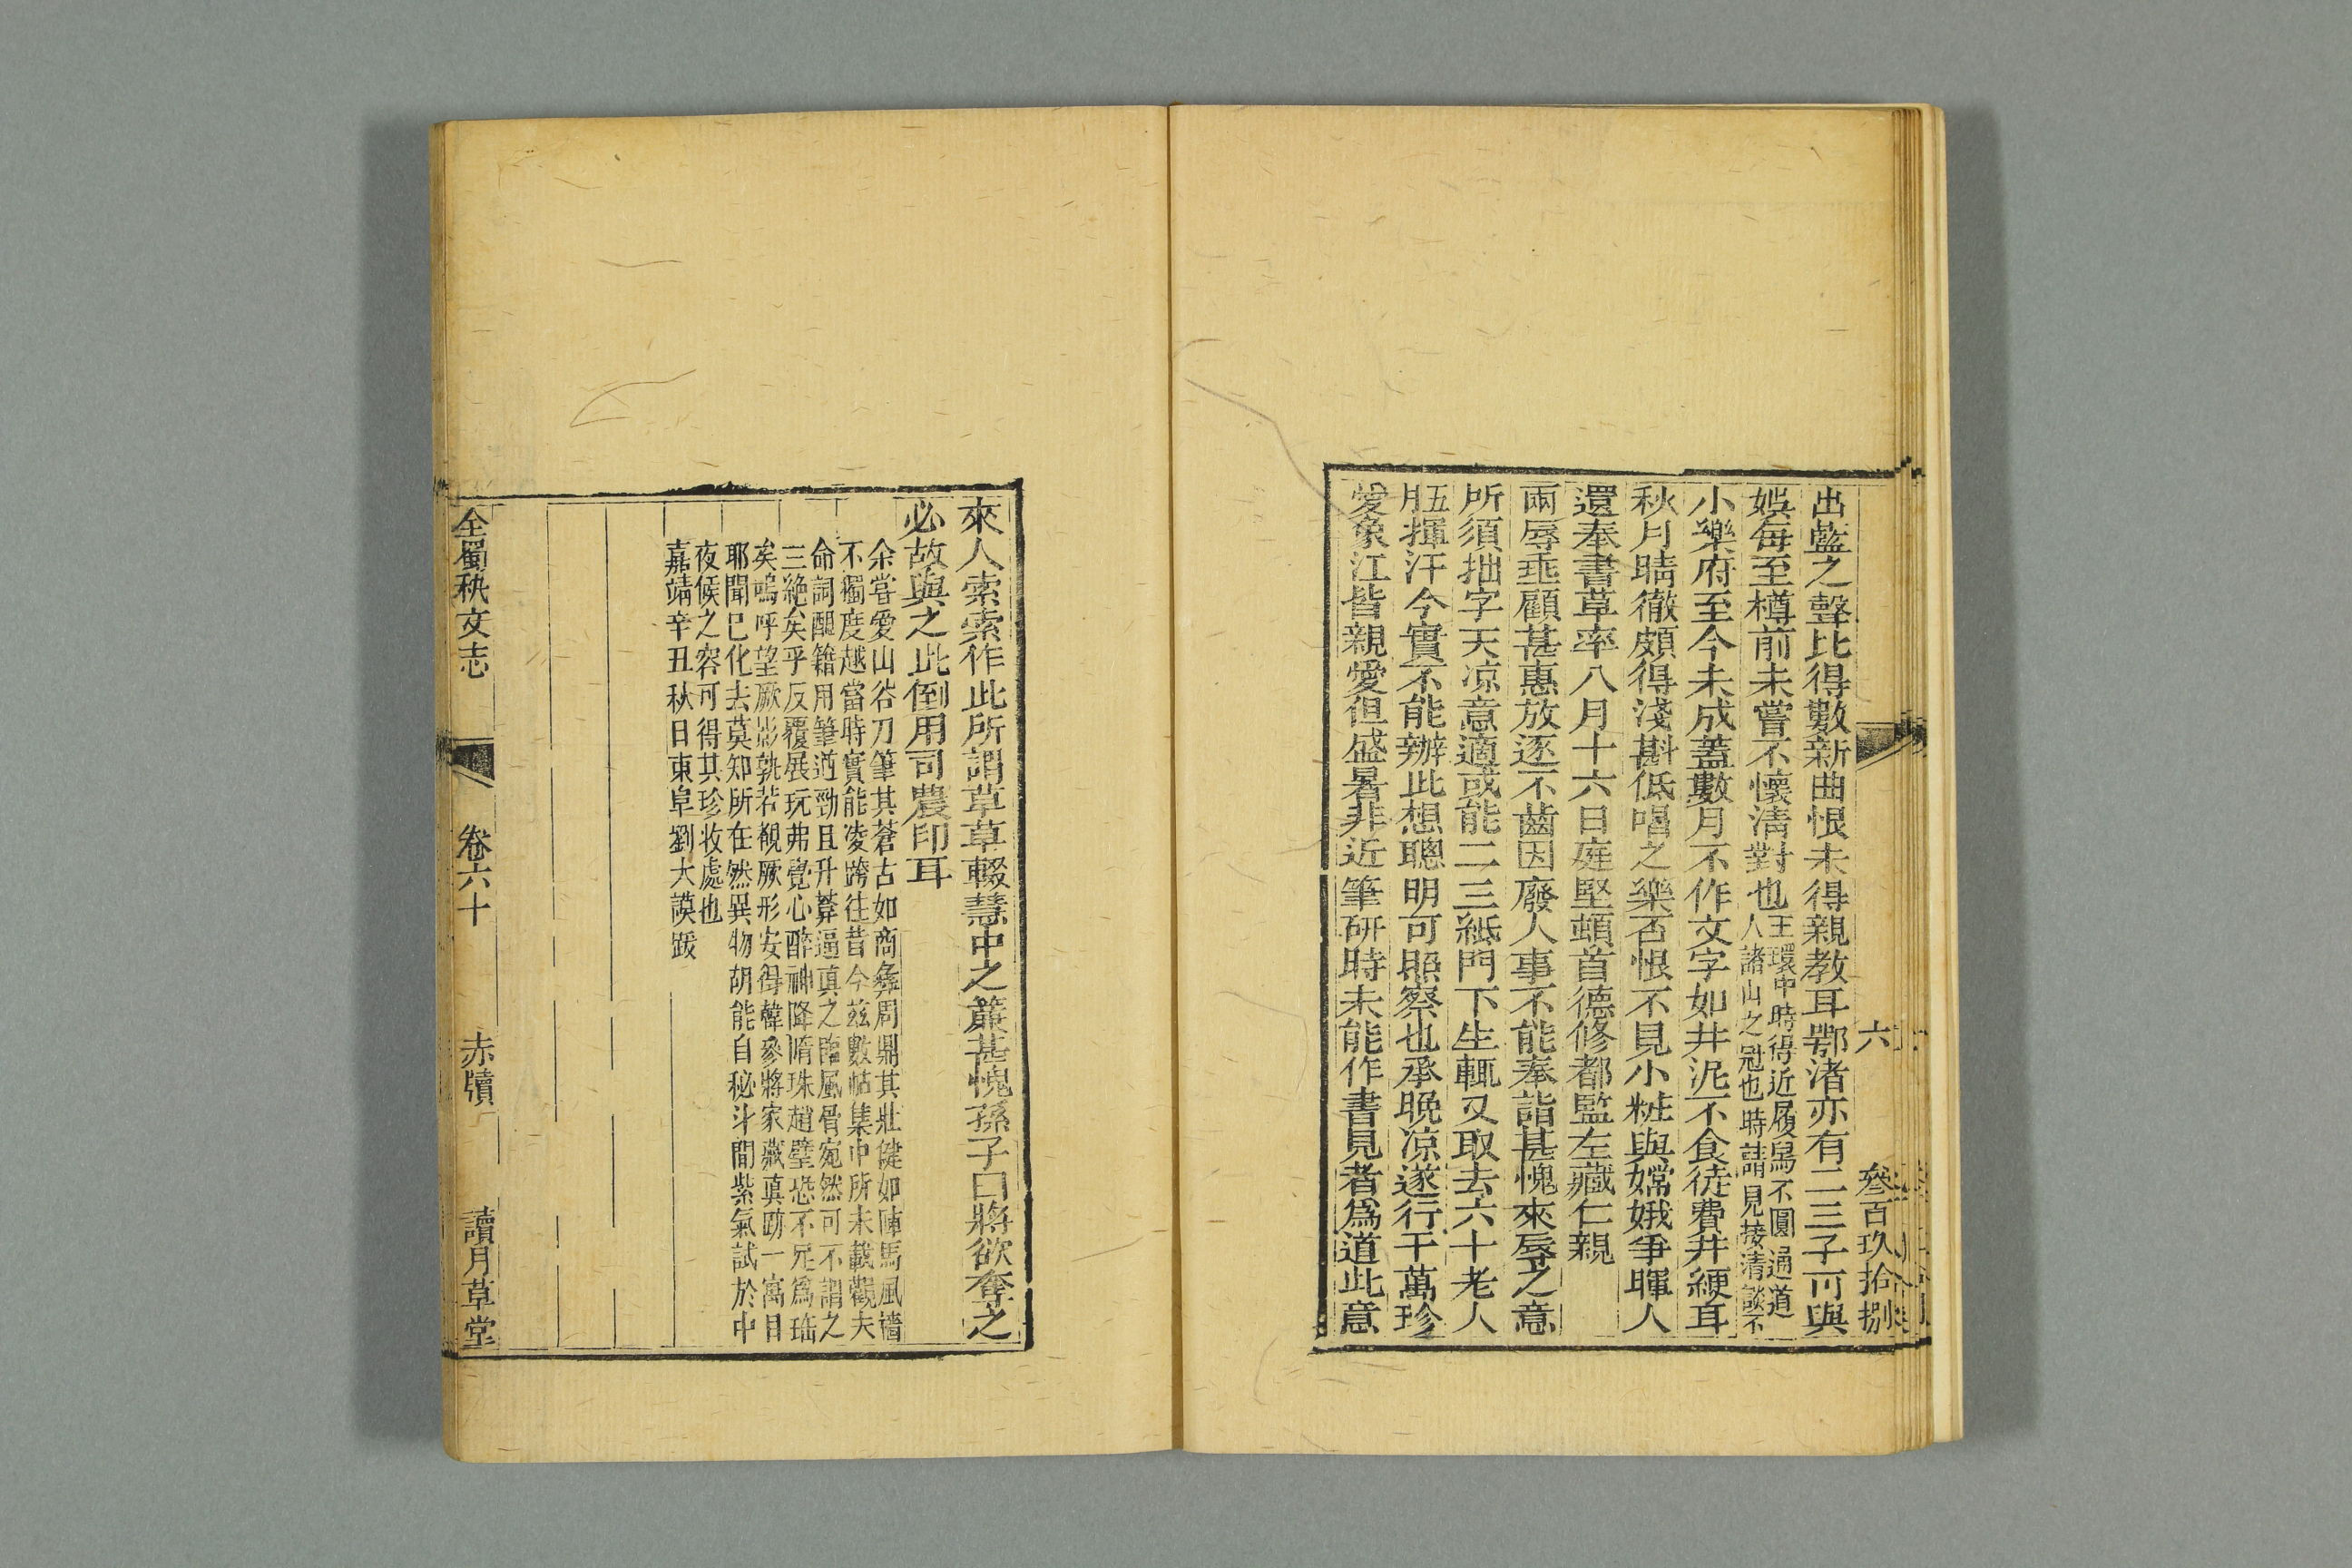 六
叁百玖拾捌
出藍之聲比得數新曲恨未得親教耳鄂渚亦有二三子可與
娛每至樽前未嘗不懷清對也
王環中時得近屨舄不圓通道
人諸山之冠也時請見接清談不
小樂府至今未成蓋數月不作文字如井泥不食徒費井綆耳
秋月晴徹頗得淺斟低唱之樂否恨不見小粧與嫦娥爭暉人
還奉書草率八月十六日庭堅頓首德修都監左藏仁親
兩辱垂顧甚惠放逐不齒因廢人事不能奉詣甚愧來辱之意
所須拙字天凉意適或能二三紙門下生輒又取去六十老人
五月揮汗今實不能辦此想聰明可照察也承晚凉遂行千萬珍
愛象江皆親愛但盛暑非近筆研時未能作書見者爲道此意
來人索索作此所謂草草輟慧中之簾甚愧孫子曰將欲奪之
必故與之此倒用司農印耳
余嘗愛山谷刀筆其蒼古如商彝周鼎其壯健如陣馬風檣
不獨度越當時實能凌跨往昔今兹數帖集中所未載觀夫
命詞醞籍用筆遒勁且升菴逼真之臨風骨宛然可不謂之
三絶矣乎反覆展玩弗覺心醉神降隋珠趙璧恐不足爲
矣嗚呼望厥影孰若覩厥形安得韓參將家藏真跡一寓目
耶聞已化去莫知所在然異物胡能自秘斗間紫氣試於中
夜候之容可得其珍收處也
嘉靖辛丑秋日東阜劉大謨跋
全蜀秇文志
卷六十
赤牘
讀月草堂